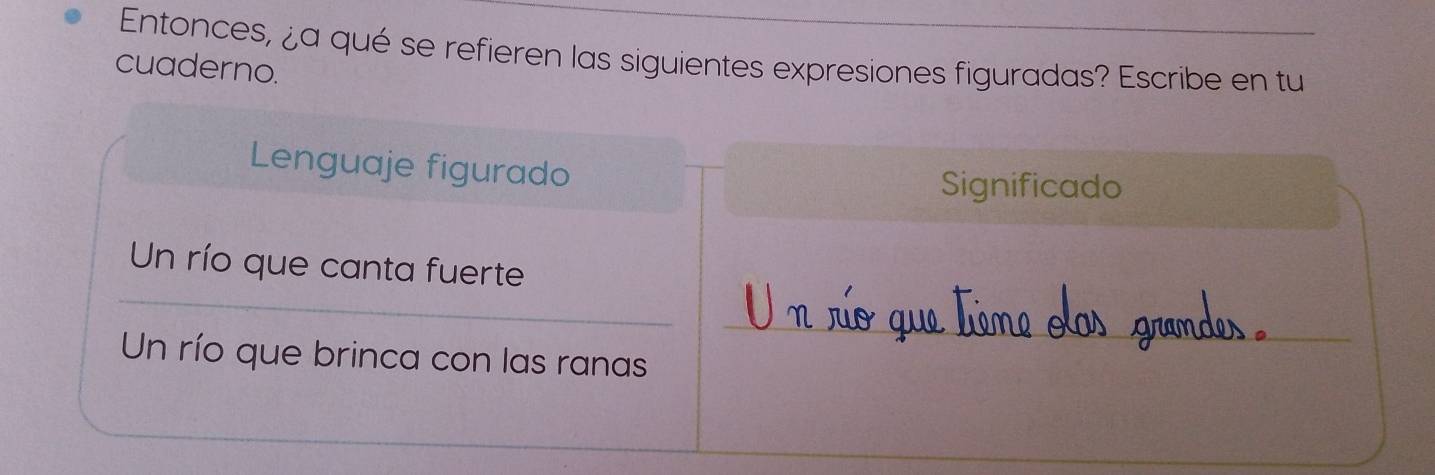 Entonces, ¿a qué se refieren las siguientes expresiones figuradas? Escribe en tu
cuaderno.
Lenguaje figurado
Significado
Un río que canta fuerte
Un río que tiene olas grandes.
Un río que brinca con las ranas